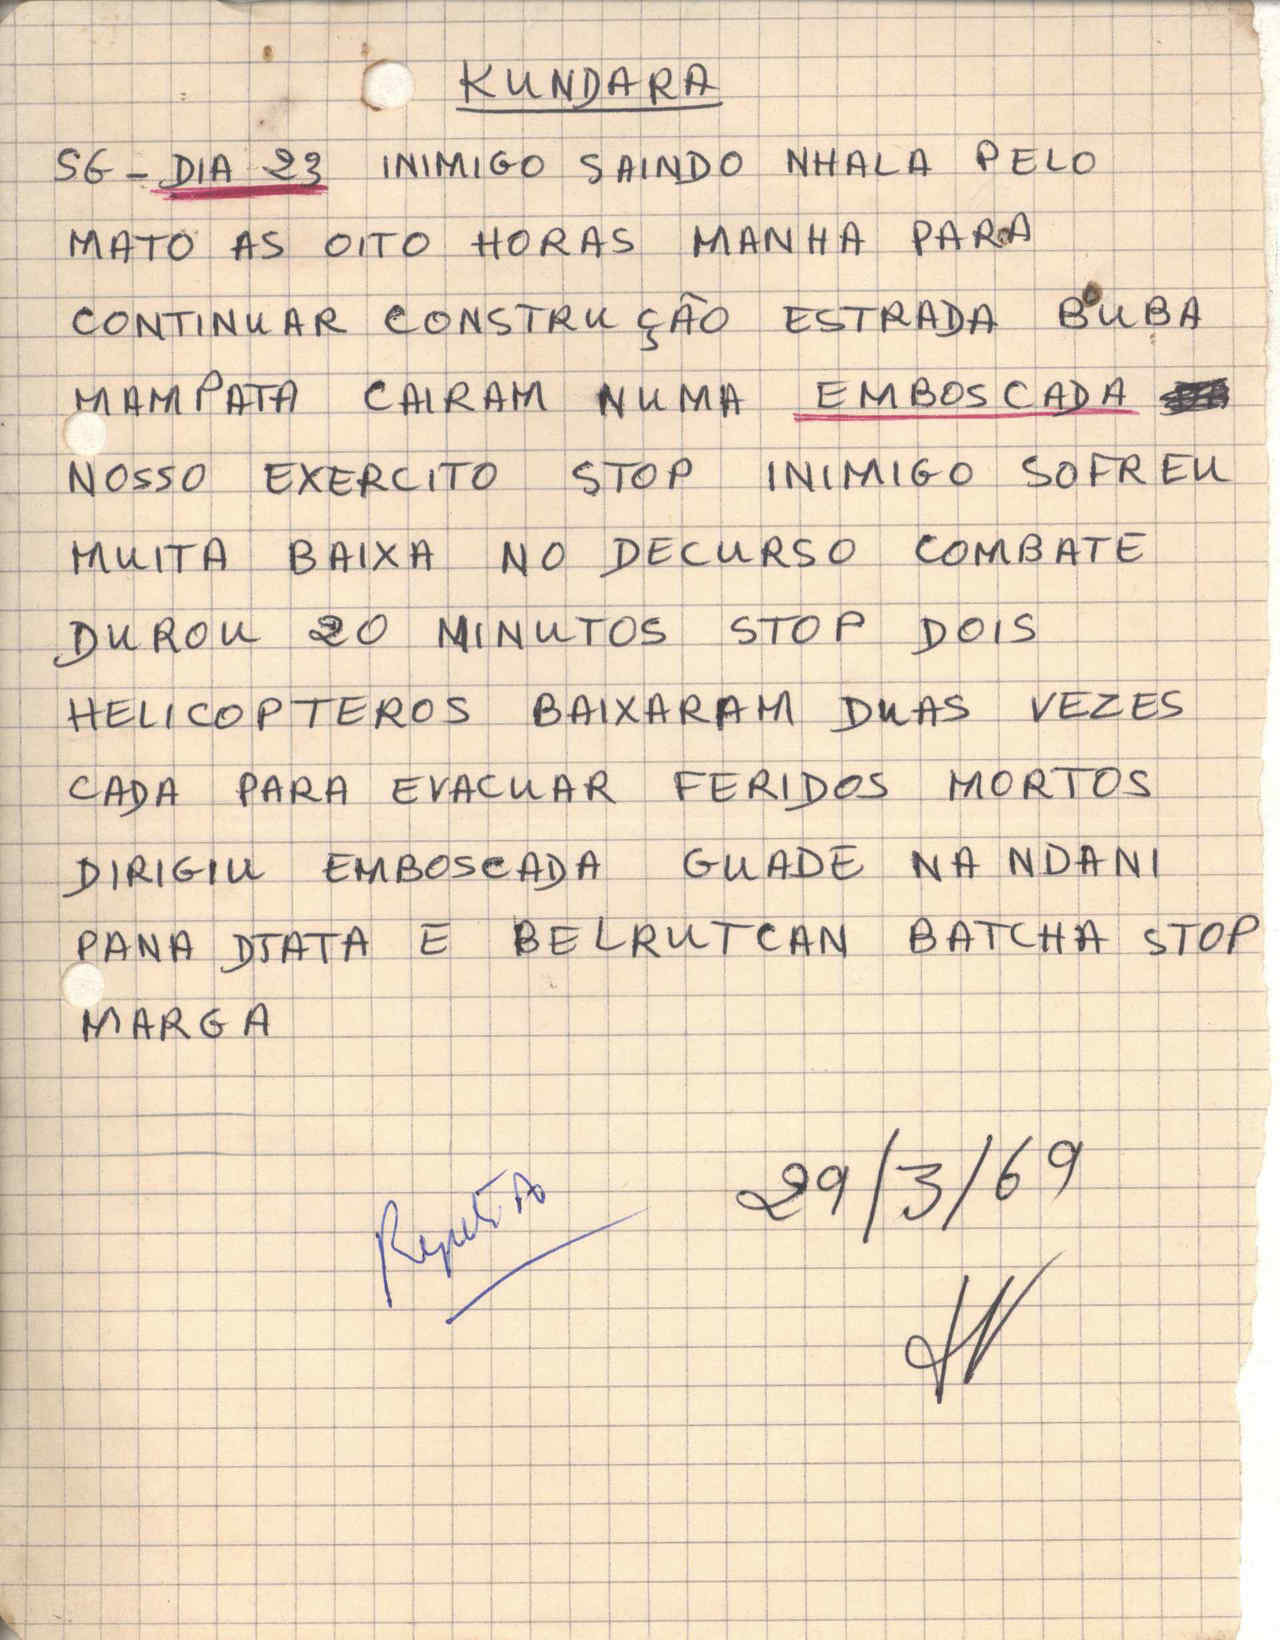 KUNDARA
SG - DIA 23 INIMIGO SAINDO NHALA PELO
MATO AS OITO HORAS MANHA PARA
CONTINUAR CONSTRUÇÃO ESTRADA BUBA
MAMPATA CAIRAM NUMA EMBOSCADA
NOSSO EXERCITO STOP INIMIGO SOFREU
MUITA BAIXA NO DECURSO COMBATE
DUROU 20 MINUTOS STOP DOIS
HELICOPTEROS BAIXARAM DUAS VEZES
CADA PARA EVACUAR FERIDOS MORTOS
DIRIGIU EMBOSCADA GUADE NA NDANI
PANA DJATA E BELRUTCAN BATCHA STOP
MARGA
29/3/69